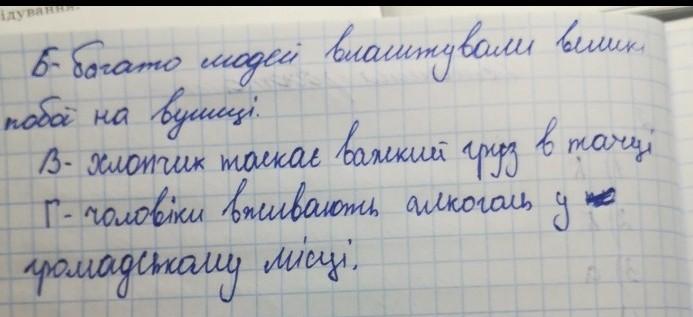 ідування.
Б- багато людей влаштували великі
побої на вулиці.
В- хлопчик таскає важкий груз в тачці
Г- чоловіки вживають алкоголь у
громадському місці.